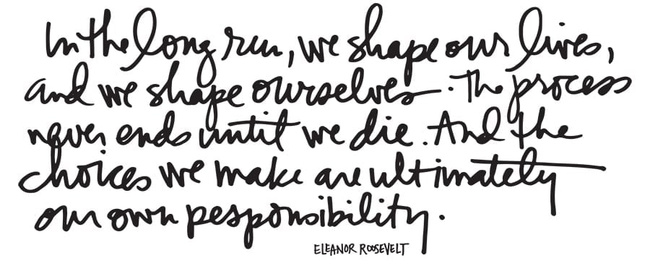 In the long run, we shape our lives,
and we shape ourselves. The process
never ends until we die. And the
choices we make are ultimately
our own responsibility.
ELEANOR ROOSEVELT